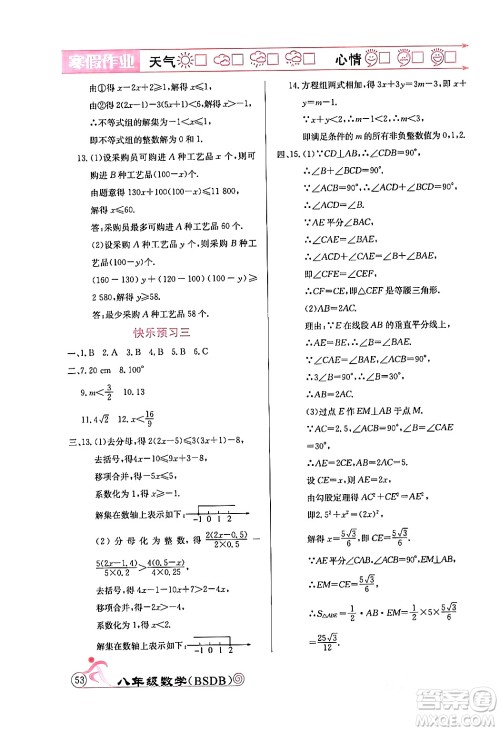 寒假作业 天气 心情
由①得 x－2x＋2≥1,解得 x≤1.
由②得 2(2x－1)－3(5x＋1)≤6.
解得 x≥－1.
∴不等式组的解集为－1≤x≤1.
即不等式组的整数解为－1、0、1.
13. (1)设采购员可购进 A 种工艺品 x 个,则可购进 B 种工艺品(100－x)个.
由题意得 130x＋100(100－x)≤11 800.
解得 x≤60.
答:采购员最多可购进 A 种工艺品 60 个.
(2)设采购 A 种工艺品 y 个,则采购 B 种工艺品(100－y)个.
(160－130)y＋(120－100)(100－y)≥
2 580,解得 y≥58.
答:最少采购 A 种工艺品 58 个.
快乐预习三
一、1.B 2.A 3.A 4.C 5.C 6.D
二、7.20 cm 8.100°
9.m＜3/2 10.13
11.4√2 12.m＜16/9
三、13.(1)去分母,得 2(2x－5)≤3(3x＋4)－6
去括号,得 4x－10≤9x＋12－6
移项合并,得－5x≤16
系数化为 1,得
解集在数轴上表示为 -1 0 1 2
(2)分母化为整数,得
5(2x－1.4)/(4×0.2)
移项合并,得
系数化为 1,得
解集在数轴上表示为 -1 0 1 2
14. 方程组两式相加,得 3x＋3y＝3m,即 x＋
y＝m.
∵x＋y＜3,∴m＜3.
即满足条件的 m 的所有非负整数值为 0,1,2.
四、15. (1)∵CD⊥AB,∴∠CDB＝90°.
∴∠B＋∠BCD＝90°.
∵∠ACB＝90°.
∴∠BCD＋∠ACD＝90°.
∴∠B＝∠ACD.
∵AE 平分∠CAB.
∴∠CAE＝∠BAE.
∵∠B＋∠BAE＝∠CEA,
∠ACD＋∠CAE＝∠CFE,
∴∠CFE＝∠CEF.
∴CE＝CF,即△CEF 是等腰三角形.
(2)AB＝2AC.
理由:∵E 在 AB 的垂直平分线上,
∴AE＝BE.
∴∠BAE＝∠B.
∵AE 平分∠CAB,∠ACB＝90°,
∴3∠B＝90°,∴∠B＝30°.
∴AB＝2AC.
(3)过点 E 作 EM⊥AB 于点 M.
∵AC＝2.5,∠B＝30°,∴AB＝5.
∵∠CAE＝30°,∴AE＝2CE.
设 CE＝x,则 AE＝2x.
由勾股定理得 AC²＋CE²＝AE²,
即 2.5²＋x²＝(2x)².
解得 x＝5√3/6,∴CE＝5√3/6.
∵AE 平分∠CAB,∴EM＝CE＝5√3/6.
∴S△ABE＝1/2·AB·EM＝1/2×5×5√3/6
＝25√3/12.
53 八年级数学(BSDB)